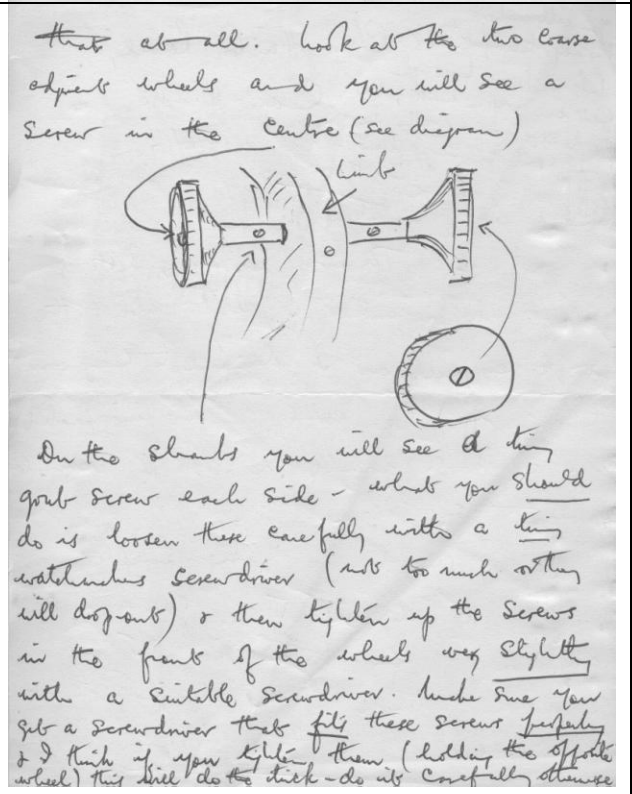 that at all. Look at the two coarse
adjment wheels and you will see a
screw in the centre (see diagram)
Limb
On the shanks you will see a tiny
grub screw each side - what you should
do is loosen these carefully with a tiny
watchmakers screwdriver (not too much or they
will drop out) & then tighten up the screws
in the front of the wheels very slightly
with a suitable screwdriver. Make sure you
get a screwdriver that fits these screws perfectly
& I think if you tighten them (holding the opposite
wheel) this will do the trick - do it carefully otherwise